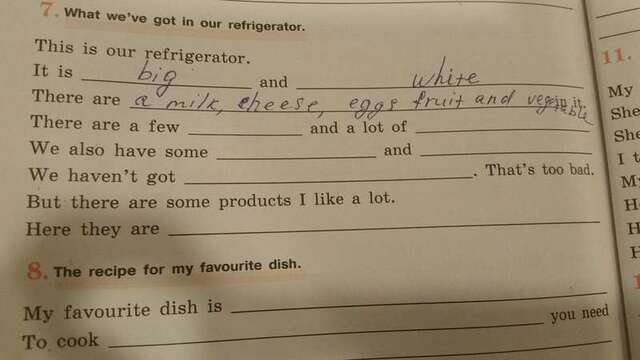 7. What we've got in our refrigerator.
This is our refrigerator.
It is big and white
There are a milk, cheese, eggs fruit and
There are a few and a lot of
We also have some and
We haven't got . That's too bad.
But there are some products I like a lot.
Here they are
8. The recipe for my favourite dish.
My favourite dish is
To cook you need
11.
My
She
She
I t
M
H
H